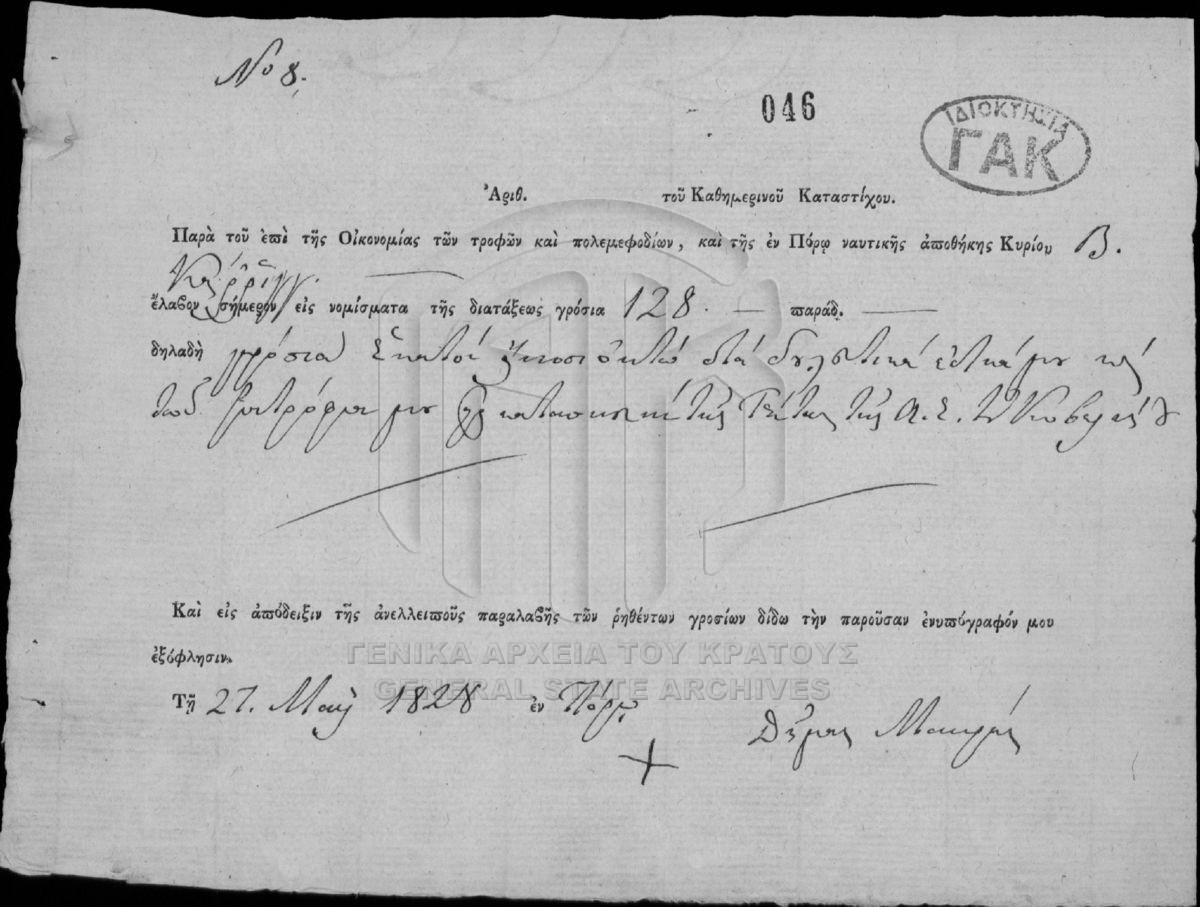 Νο 8.
046
ΙΔΙΟΚΤΗΣΙΑ
ΓΑΚ
Ἀριθ. τοῦ Καθημερινοῦ Καταστίχου.
Παρὰ τοῦ ἐπὶ τῆς Οἰκονομίας τῶν τροφῶν καὶ πολεμεφοδίων, καὶ τῆς ἐν Πόρῳ ναυτικῆς ἀποθήκης Κυρίου Β.
ἔλαβον σήμερον εἰς νομίσματα τῆς διατάξεως γρόσια 128. — παράδ. —
δηλαδὴ γρόσια ἑκατόν ὀκτώ διά δουλευτικά μου καί
τοῦ μου κατασκευήν τῆς τῆς Α. Ε. τοῦ Κυβερνήτου
Καὶ εἰς ἀπόδειξιν τῆς ἀνελλειποῦς παραλαβῆς τῶν ῥηθέντων γροσίων δίδω τὴν παροῦσαν ἐνυπόγραφόν μου
ἐξόφλησιν.
ΓΕΝΙΚΑ ΑΡΧΕΙΑ ΤΟΥ ΚΡΑΤΟΥΣ
GENERAL STATE ARCHIVES
Τῇ 27. Μαΐου 1828 ἐν Πόρῳ
Μακρής